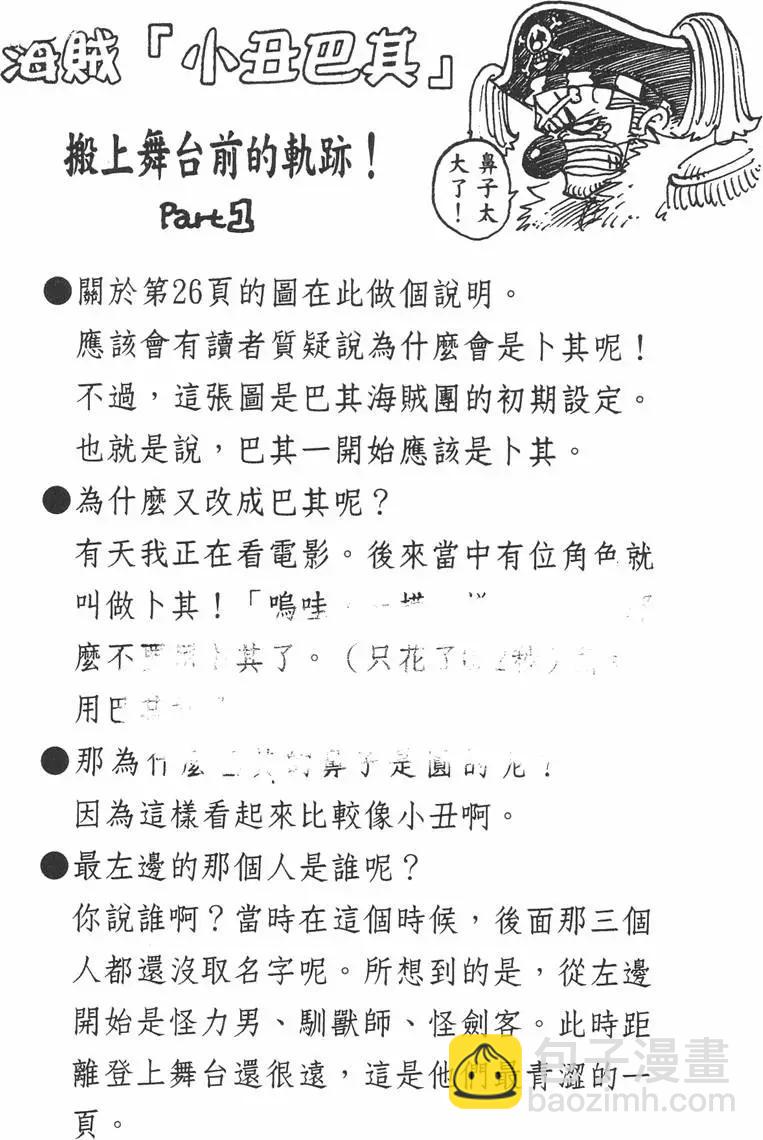 海賊「小丑巴其」
搬上舞台前的軌跡！
Part1
鼻子太
大了！
●關於第26頁的圖在此做個說明。
應該會有讀者質疑說為什麼會是卜其呢！
不過，這張圖是巴其海賊團的初期設定。
也就是說，巴其一開始應該是卜其。
●為什麼又改成巴其呢？
有天我正在看電影。後來當中有位角色就
叫做卜其！「嗚哇
麼不　　其了。（只花了
用巴
●那為什麼　　的鼻子是圓的呢！
因為這樣看起來比較像小丑啊。
●最左邊的那個人是誰呢？
你說誰啊？當時在這個時候，後面那三個
人都還沒取名字呢。所想到的是，從左邊
開始是怪力男、馴獸師、怪劍客。此時距
離登上舞台還很遠，這是他們最青澀的一
頁。
包子漫畫
baozimh.com